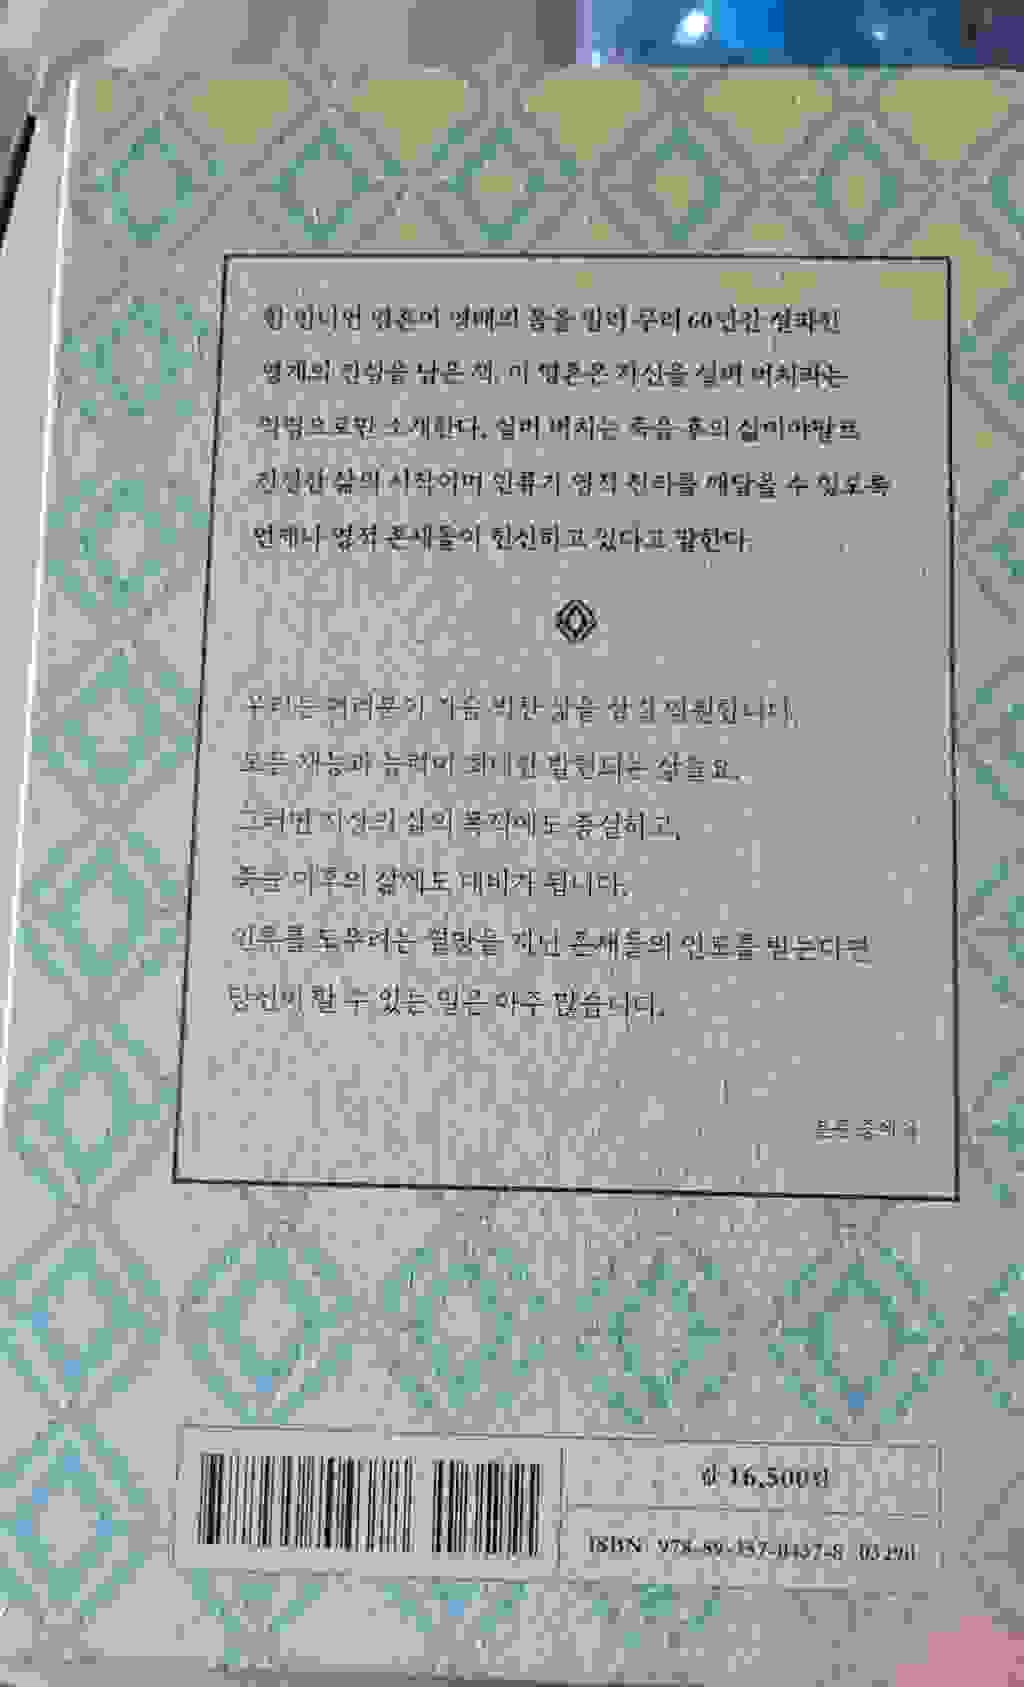 한 인디언 영혼이 영매의 몸을 빌려 무려 60년간 설파한
영계의 진실을 담은 책. 이 영혼은 자신을 실버 버치라는
소개한다. 실버 버치는 죽음 후의 삶이야말로
진정한 삶의 시작이며 인류가 영적 진리를 깨달을 수 있도록
언제나 영적 존재들이 헌신하고 있다고 말한다.
우리는 여러분이 삶을 살길 원한답니다.
모든 재능과 능력이 최대한 발현되는 삶을요.
그러면 지상의 삶의 목적에도 충실하고,
죽음 이후의 삶에도 대비가 됩니다.
인류를 도우려는 열망을 지닌 존재들의 인도를 받는다면
당신이 할 수 있는 일은 아주 많습니다.
본문 중에서
값 16,500원
ISBN